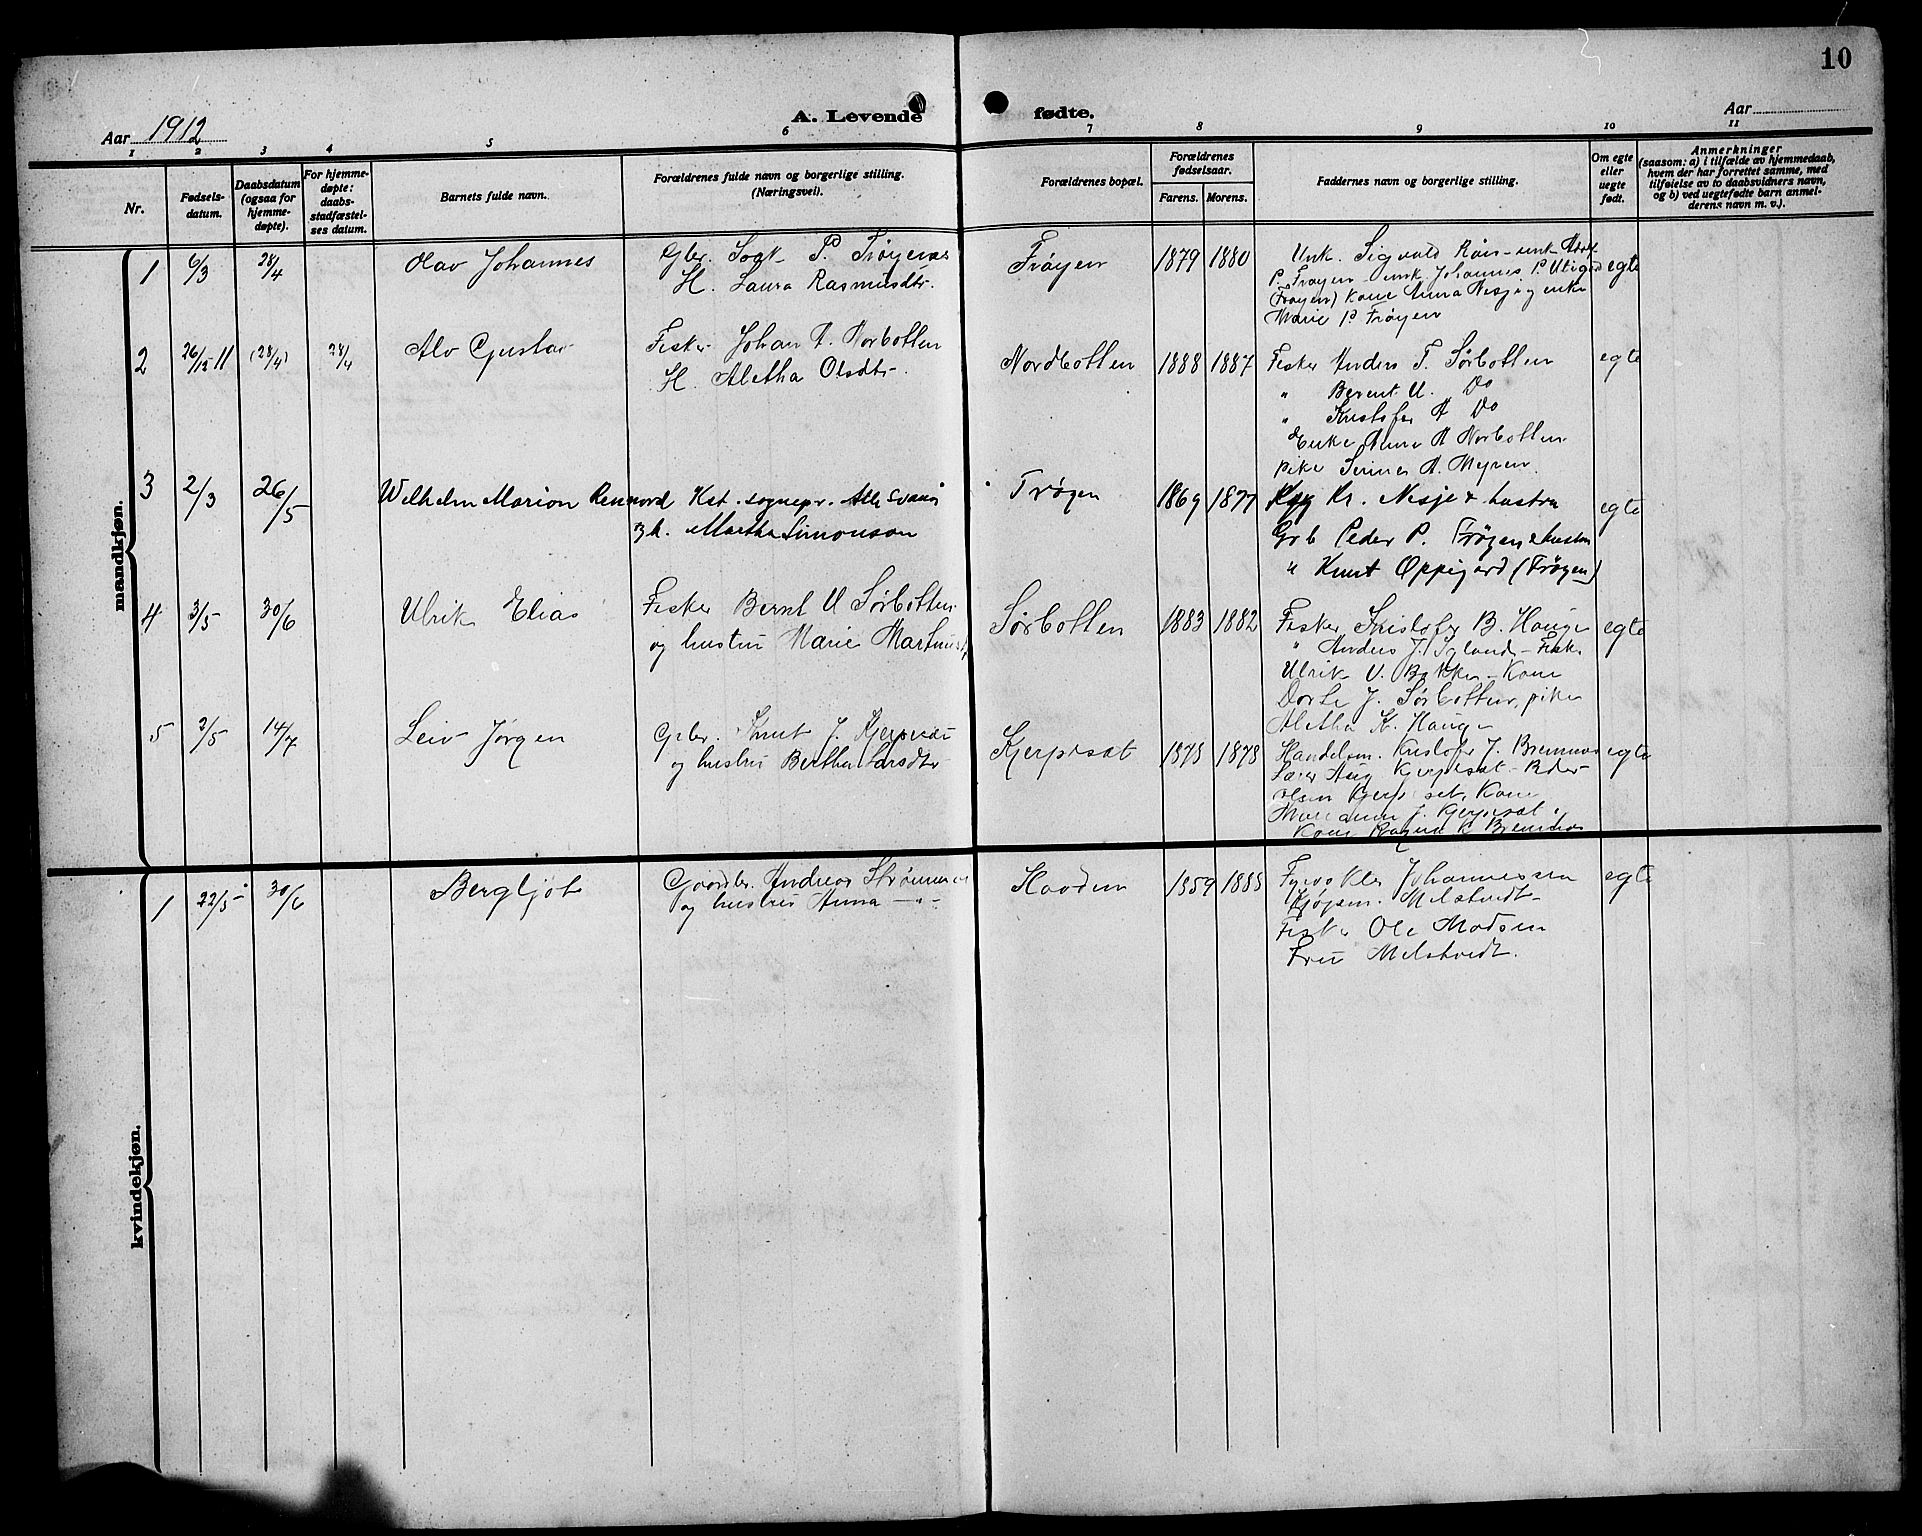 10
Aar 1912
A. Levende fødte.
Aar
1 2 3 4 5 6 7 8 9 10 11
Nr.
Fødsels-
datum.
Daabsdatum
(ogsaa for
hjemme-
døpte).
For hjemme-
døpte:
daabs-
stadfæstel-
ses datum.
Barnets fulde navn.
Forældrenes fulde navn og borgerlige stilling.
(Næringsvei).
Forældrenes bopæl.
Forældrenes
fødselsaar.
Farens. Morens.
Faddernes navn og borgerlige stilling.
Om egte
eller
uegte
født.
Anmerkninger
(saasom: a) i tilfælde av hjemmedaab,
hvem der har forrettet samme, med
tilføielse av to daabsvidners navn,
og b) ved uegtefødte barn anmel-
derens navn m. v.).
mandkjøn.
1 6/3 28/4 Olav Johannes
Gbr. P. Frøyen
H. Laura Rasmusdtr.
Frøyen 1879 1880
Unk. Sigvald unk.
P. Frøyen unk. Johannes P.
(Frøyen) Kone Anna Nesje og enke
Marie P. Frøyen
egte
2 26/12-11 (28/4) 28/4 Alv Gustav
Fisker Johan A. Norbotten
H. Aletha Olsdtr.
Nordbotten 1888 1887
Fisker Anders T. Sørbotten
" Berent U. Do
" Kristofer A Do
Enke Anna A Norbotten
pike A. Myren.
egte
3 2/3 26/5 Wilhelm Marion Rennord
Kst. sognepr. Atle
og h. Martha Simonson
Frøyen 1869 1877
Kr. Nesje & hustru
Grb Peder P. Frøyen & hustru
" Knut Oppigard (Frøyen)
egte
4 3/5 30/6 Ulrik Elias
Fisker Bernt U Sørbotten
og hustru Marie
Sørbotten 1883 1882
Fisker Kristofer B. Hauge
" Anders J. Igland - Fisk.
Ulrik U. Bakken - Kone
Dorte J. Sørbotten, pike
Aletha K. Hauge
egte
5 2/5 14/7 Leiv Jørgen
Gbr. Knut J.
og hustru Bertha Larsdtr
Kjerpeset 1878 1878
Handelsm. Kristofer J. Bremnes
Aug Kjerpeset - Peder
Olsen Kjerpeset, Kone
Marianne J. Kjerpeset
Kone Bremnes
egte
kvindekjøn.
1 22/5 30/6 Bergljot
Gaardbr. Andreas
og hustru Anna
1859 1885
Johannessen
Melstvedt
Fisker Ole Madsen
Fru Melstvedt.
egte